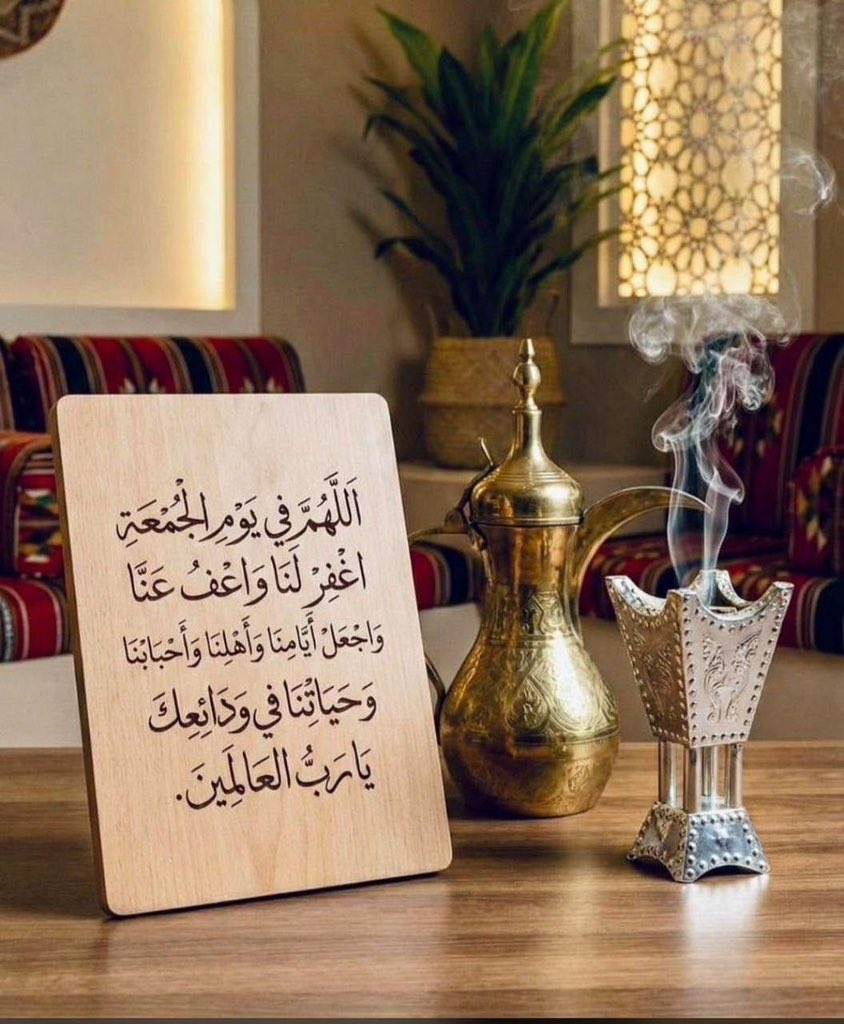 اَللَّهُمَّ فِي يَوْمِ الْجُمْعَةِ
اغْفِرْ لَنَا وَاعْفُ عَنَّا
وَاجْعَلْ أَيَّامِنَا وَأَهْلِنَا وَأَحْبَابْنَا
وَحَيَاتِْنَا فِي وَدَائِعِكَ
يَا رَبُّ الْعَالَمِينَ.